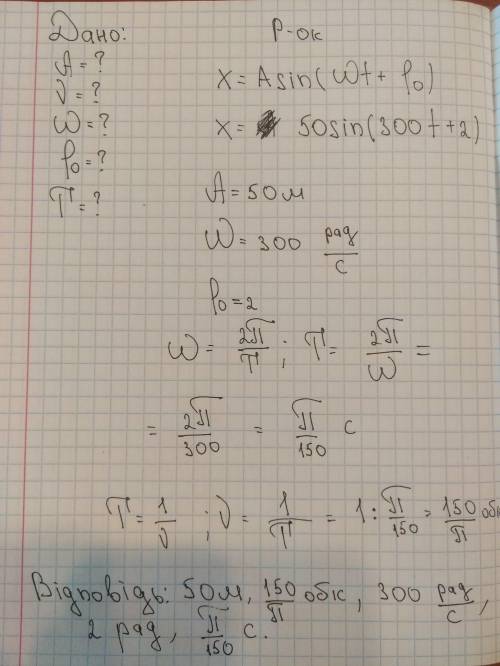 Дано:
A = ?
ν = ?
W = ?
φ₀ = ?
T = ?
Р-ок
X = A sin(Wt + φ₀)
X = 50 sin(300t + 2)
A = 50 м
W = 300 рад/с
φ₀ = 2
W = 2π/T ; T = 2π/W =
= 2π/300 = π/150 с
T = 1/ν ; ν = 1/T = 1 : π/150 = 150/π обк
Відповідь: 50 м, 150/π обк, 300 рад/с,
2 рад, π/150 с.